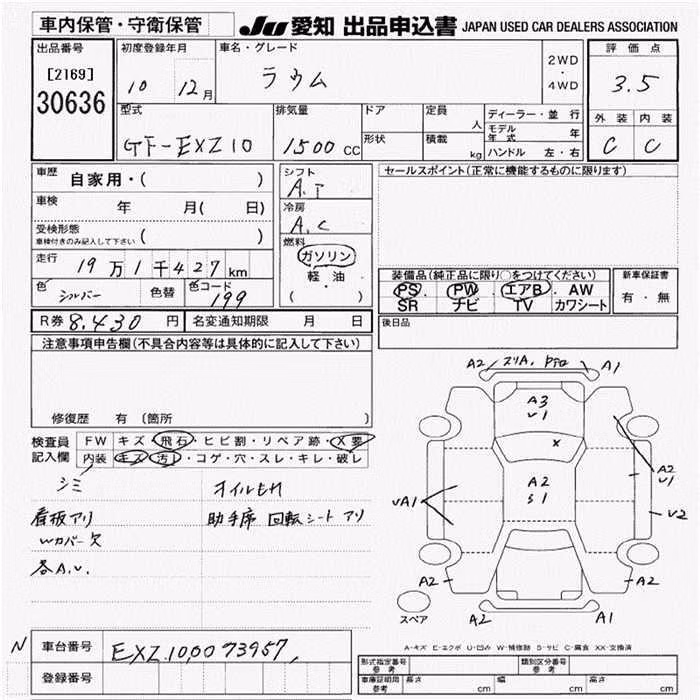 車内保管・守衛保管
JU 愛知 出品申込書 JAPAN USED CAR DEALERS ASSOCIATION
出品番号 初度登録年月 車名・グレード 評価点
[2169] 10 12月 ラウム 2WD・4WD 3.5
30636
型式 排気量 ドア 定員 人 ディーラー・並行 外装 内装
GF-EXZ10 1500cc 形状 積載 kg モデル年式 年 C C
ハンドル 左・右
車歴 自家用・( ) シフト A.T セールスポイント(正常に機能するものに限ります)
車検 年 月( 日) 冷房 A.C
受検形態 ( )
車検付きのみ記入して下さい
燃料 ガソリン
走行 19万1千427km 軽・油
色 シルバー 色替 色コード 199 ( ・ )
装備品(純正品に限り○をつけてください) 新車保証書
PS. PW. エアB. AW 有・無
SR ナビ TV カワシート
R券 8,430円 名変通知期限 月 日 後日品
注意事項申告欄(不具合内容等は具体的に記入して下さい)
修復歴 有 (箇所 )
検査員 FW キズ・飛石・ヒビ割・リペア跡・X要
記入欄 内装 キズ・汚レ・コゲ・穴・スレ・キレ・破レ
シミ オイルモレ
看板アリ 助手席 回転シート アリ
Wカバー欠
各A.U.
A2 スリA, A1
A3
U1
X
A2
S1
A2
U1
UA1 U2
A2 A2
スペア A2 A1
A-キズ E-エクボ U-凹み W-補修跡 S-サビ C-腐食 XX-交換済
N 車台番号 EXZ10,0073957,
登録番号
形式指定番号 参考 類別区分番号 参考
車庫証明用 参考 長さ cm 幅 cm 高さ cm